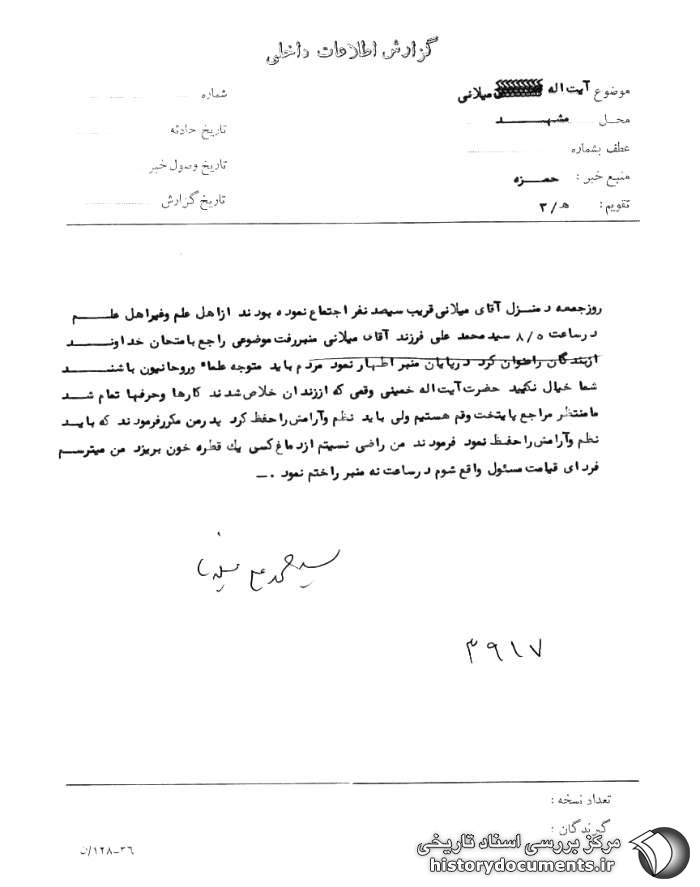 گزارش اطلاعات داخلی
موضوع آیت اله میلانی
شماره
محل مشهد
تاریخ حادثه
عطف بشماره
تاریخ وصول خبر
منبع خبر : حمزه
تاریخ گزارش
تقویم : ه‍ / ۳
روز جمعه در منزل آقای میلانی قریب سیصد نفر اجتماع نموده بودند از اهل علم و غیر اهل علم
در ساعت ۸/۵ سید محمد علی فرزند آقای میلانی منبر رفت موضوعی راجع بامتحان خداوند
از بندگان را عنوان کرد در پایان منبر اظهار نمود مردم باید متوجه علماء و روحانیون باشند
شما خیال نکنید حضرت آیت اله خمینی وقمی که از زندان خلاص شدند کارها و حرفها تمام شد
ما منتظر مراجع پایتخت وقم هستیم ولی باید نظم و آرامش را حفظ کرد پدر من مکرر فرمودند که باید
نظم و آرامش را حفظ نمود فرمودند من راضی نسیتم از دماغ کسی یك قطره خون بریزد من میترسم
فردای قیامت مسئول واقع شوم در ساعت نه منبر را ختم نمود . ــ
سید محمد علی میلانی
۳۹۱۷
تعداد نسخه :
گیرندگان :
۱۲۸-۳۶/ن
مرکز بررسی اسناد تاریخی
historydocuments.ir